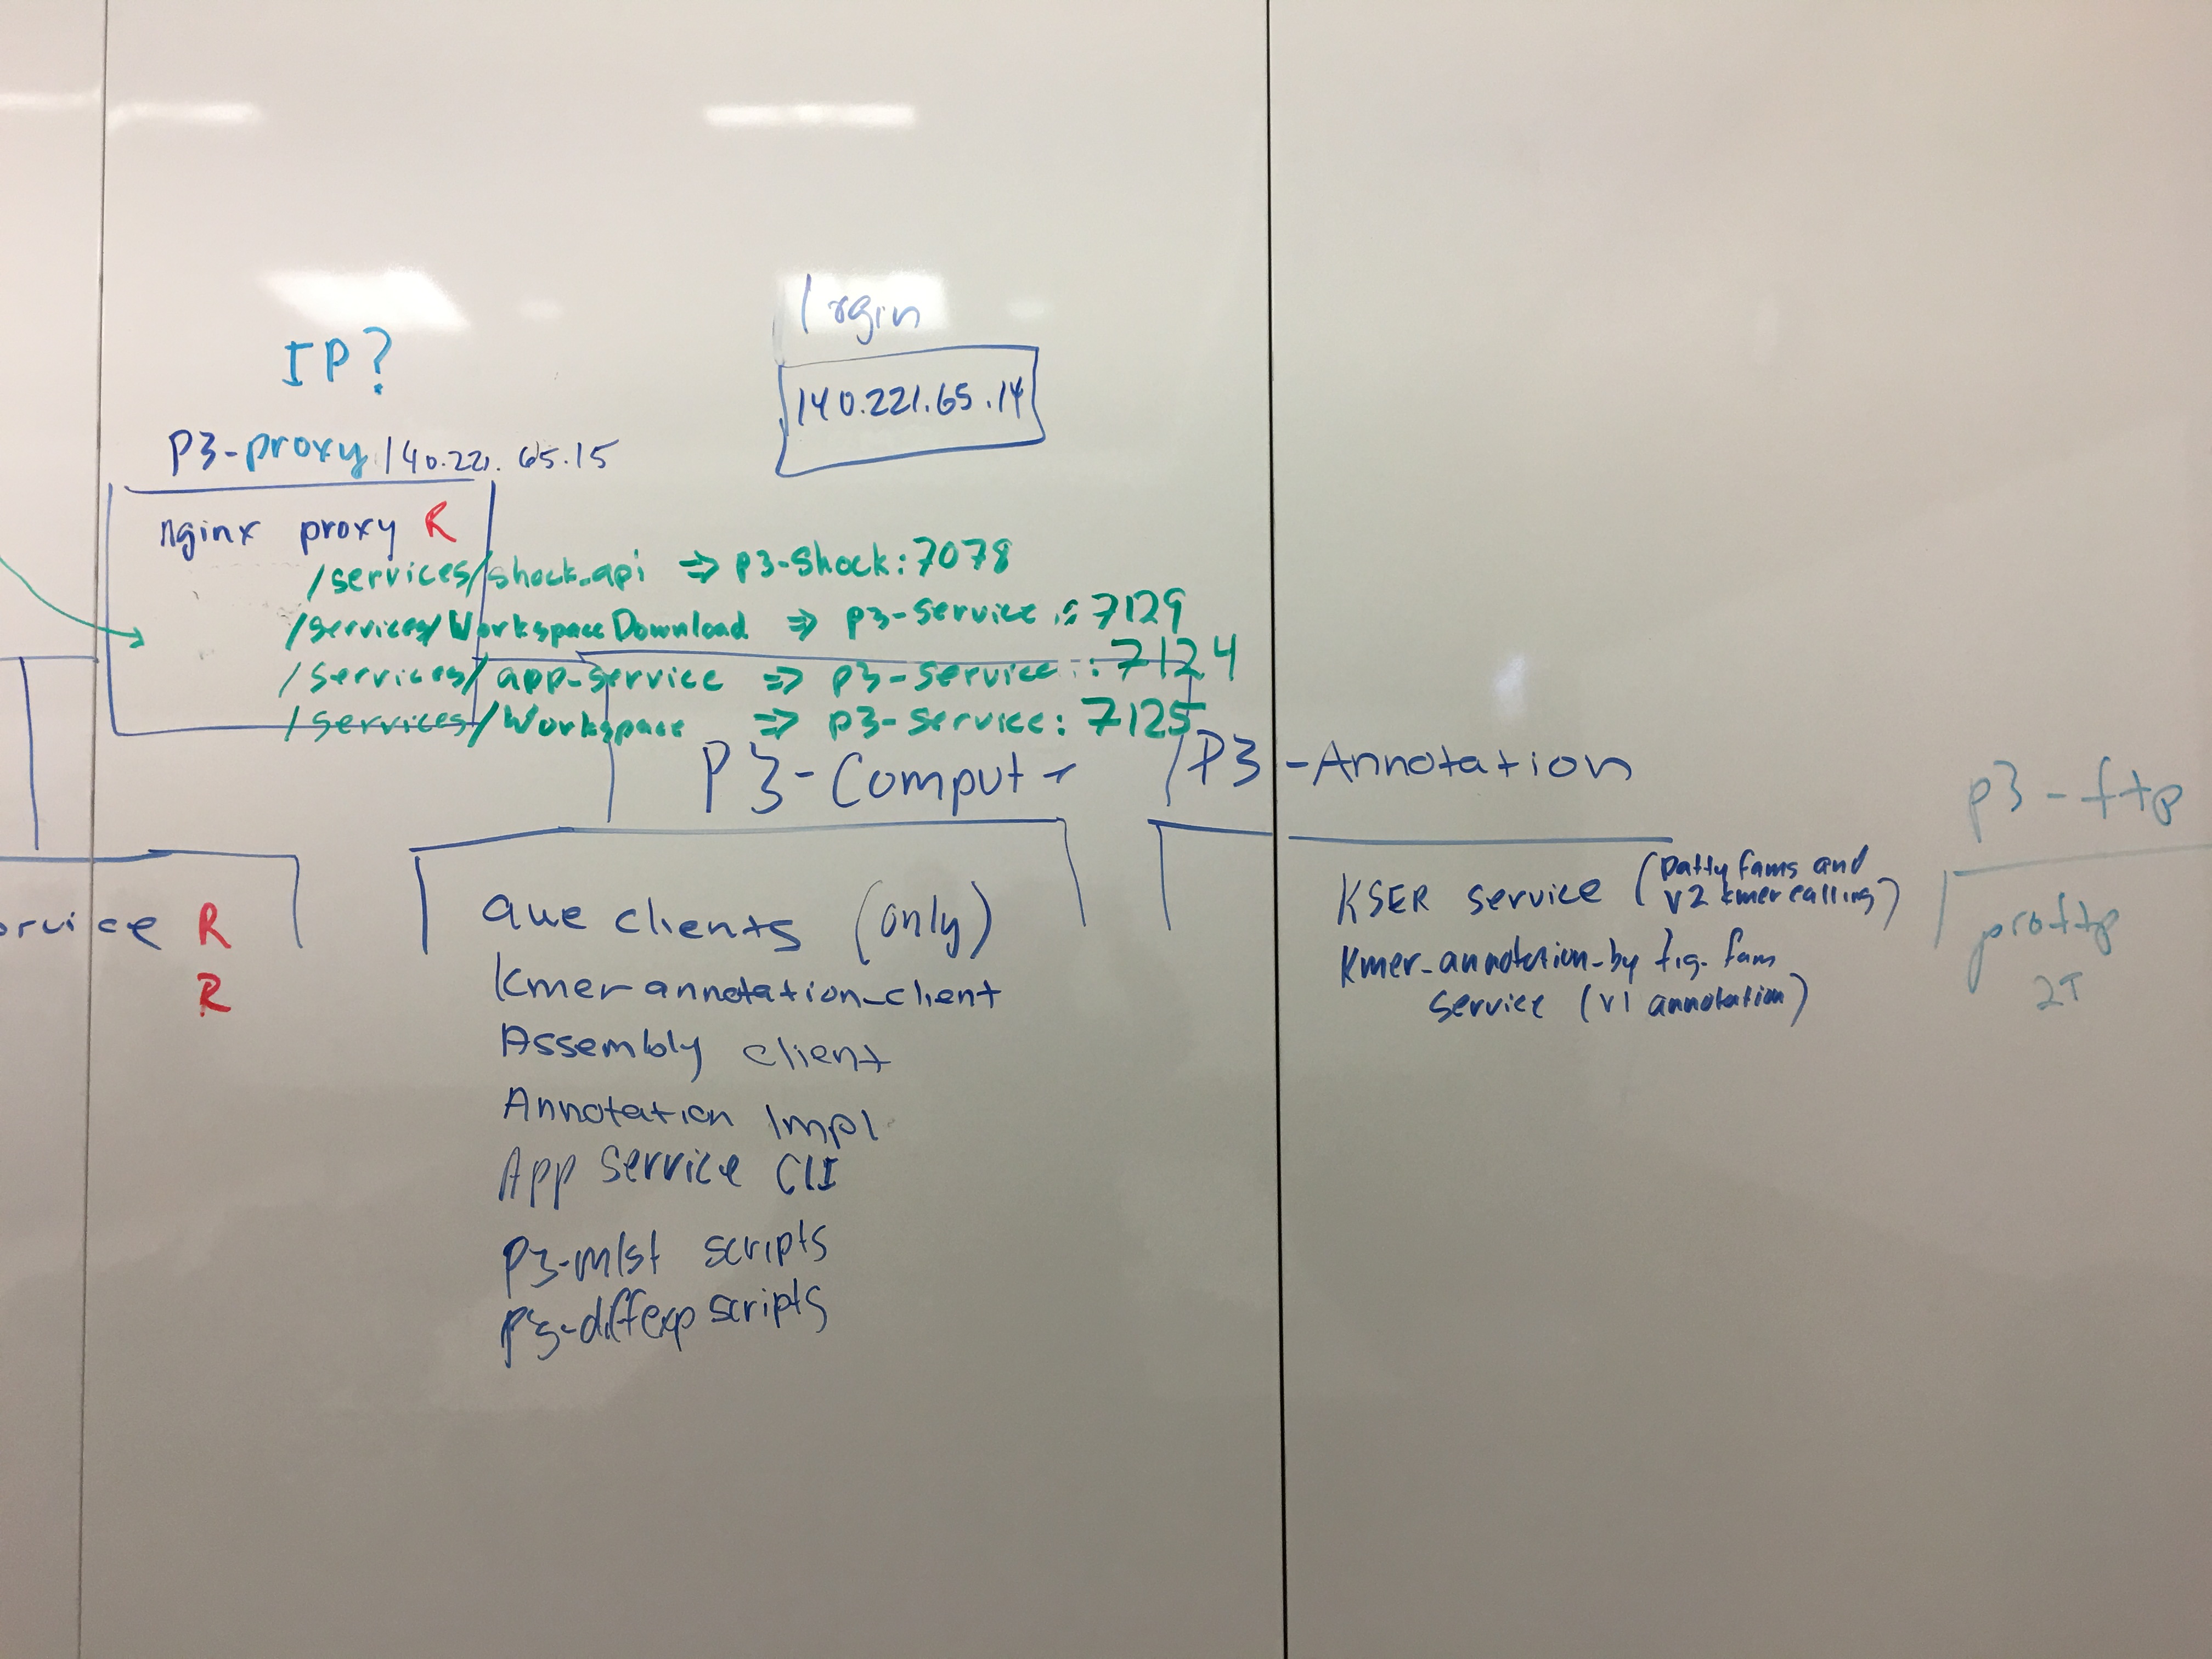 IP?
login
140.221.65.14
P3-proxy 140.221.65.15
nginx proxy R
/services/shock_api => p3-shock:7078
/services/WorkspaceDownload => p3-service:7129
/services/app_service => p3-service:7124
/services/Workspace => p3-service:7125
P3-Compute
P3-Annotation
p3-ftp
R
R
awe clients (only)
Kmer annotation_client
Assembly client
Annotation Impl
App Service CLI
P3-mlst scripts
P3-diffexp scripts
KSER service (pattyfams and
v2 kmer calling)
Kmer_annotation_by fig. fam
service (v1 annotation)
proftp
2T